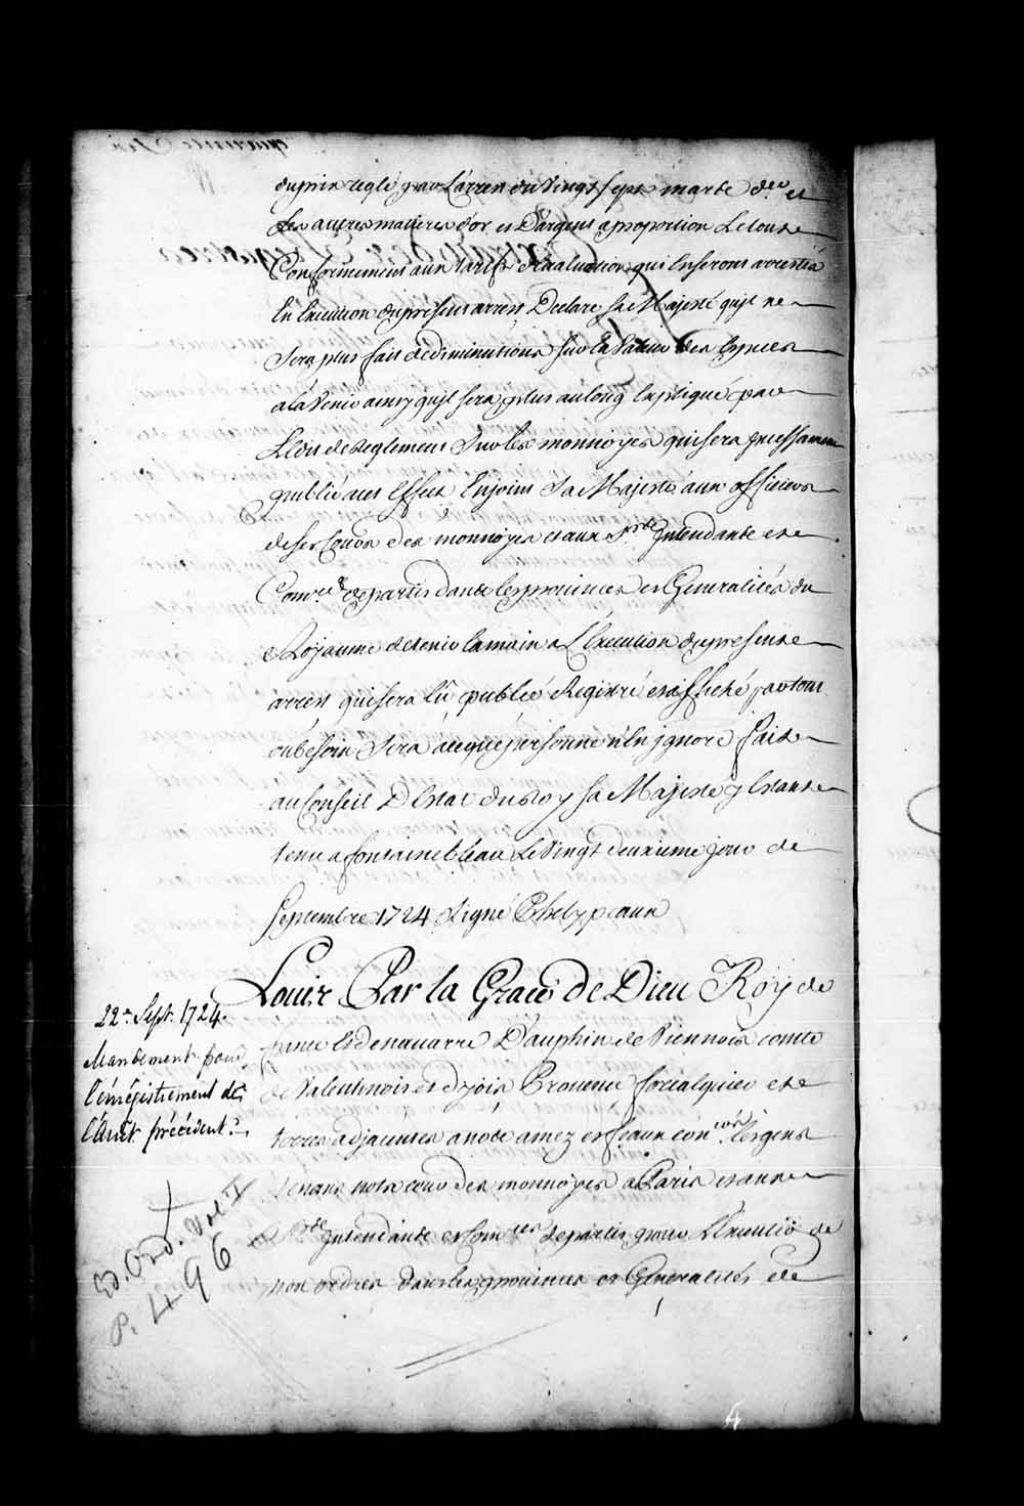 du prix reglé par L'arrest du Vingt sept mars dr et
les autres matieres d'or et D'argent a proportion Le tout
Conformement aux tarifs d'Evaluation qui Enseront arrestés
En Execution du present arrest Declare sa Majesté qu'il ne
Sera plus fait de diminutions sur la Valeur des Especes
a la Venir ainsy qu'il sera plus au long Expliqué par
L'Edit de Reglement Sur les monnoyes qui sera Incessament
publié a cet Effect Enjoint Sa Majesté aux officiers
de ses Cours des monnoyes et aux Srs Intendants et
Comres departis dans les provinces et Generalités du
Royaume de tenir la main a L'Execution du present
arrest qui sera lû publié Registré et affiché partout
ou besoin Sera a ce que personne n'En Ignore fait
au Conseil D'Estat du Roy sa Majesté y Estant
tenu a fontainebleau Le Vingt deuxieme jour de
Septembre 1724 Signé Phelypeaux
Louis Par la Grace de Dieu Roy de
22e Sept. 1724.
Mandement pour
l'enrégistrement de
l'Arrêt précédent.
france Et de navarre Dauphin de Viennois comte
de Valentinois et dyois Provence forcalquier et
terres adjacentes a nos amez et feaux con ers les gens
tenans notre cour des monnoyes a Paris et aux
Srs Intendants et Com res departis pour L'Executio de
nos ordres dans les provinces et Generalités de
Ed. Ord. Vol I
P. 496
4